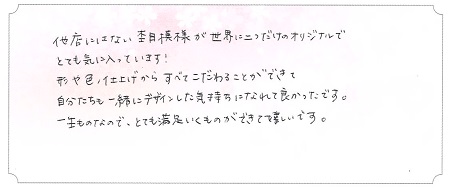 他店にはない杢目模様が世界に二つだけのオリジナルで
とても気に入っています！
形や色、仕上げからすべてこだわることができて
自分たちも一緒にデザインした気持ちになれて良かったです。
一生ものなので、とても満足いくものができて嬉しいです。